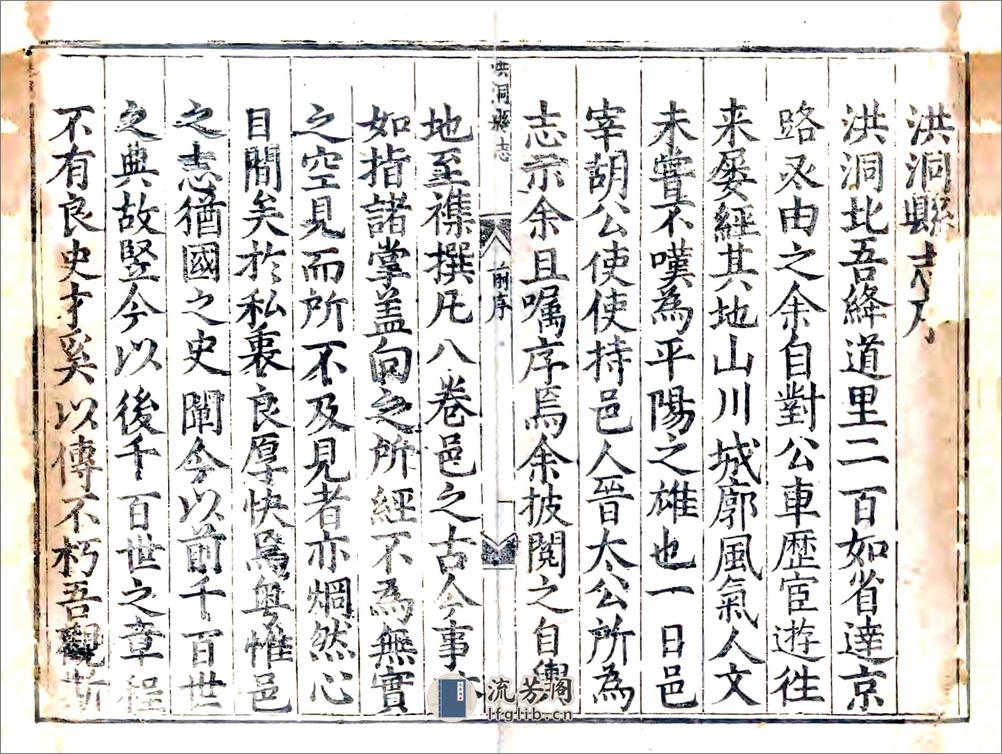 洪洞縣志序
洪洞北吾絳道里二百如省達京
路亟由之余自對公車歴宦遊徃
来屡經其地山川城廓風氣人文
未嘗不嘆為平陽之雄也一日邑
宰胡公使使持邑人晉太公所為
志示余且嘱序焉余披閱之自輿
洪洞縣志
前序
地至襍撰凡八卷邑之古今事
如指諸掌盖向之所經不為無實
之空見而所不及見者亦烱然心
目間矣於私衷良厚快焉粤惟邑
之志猶國之史闡今以前千百世
之典故竪今以後千百世之章程
不有良史才奚以傳不朽吾觀斯
流芳閣
lfglib.cn